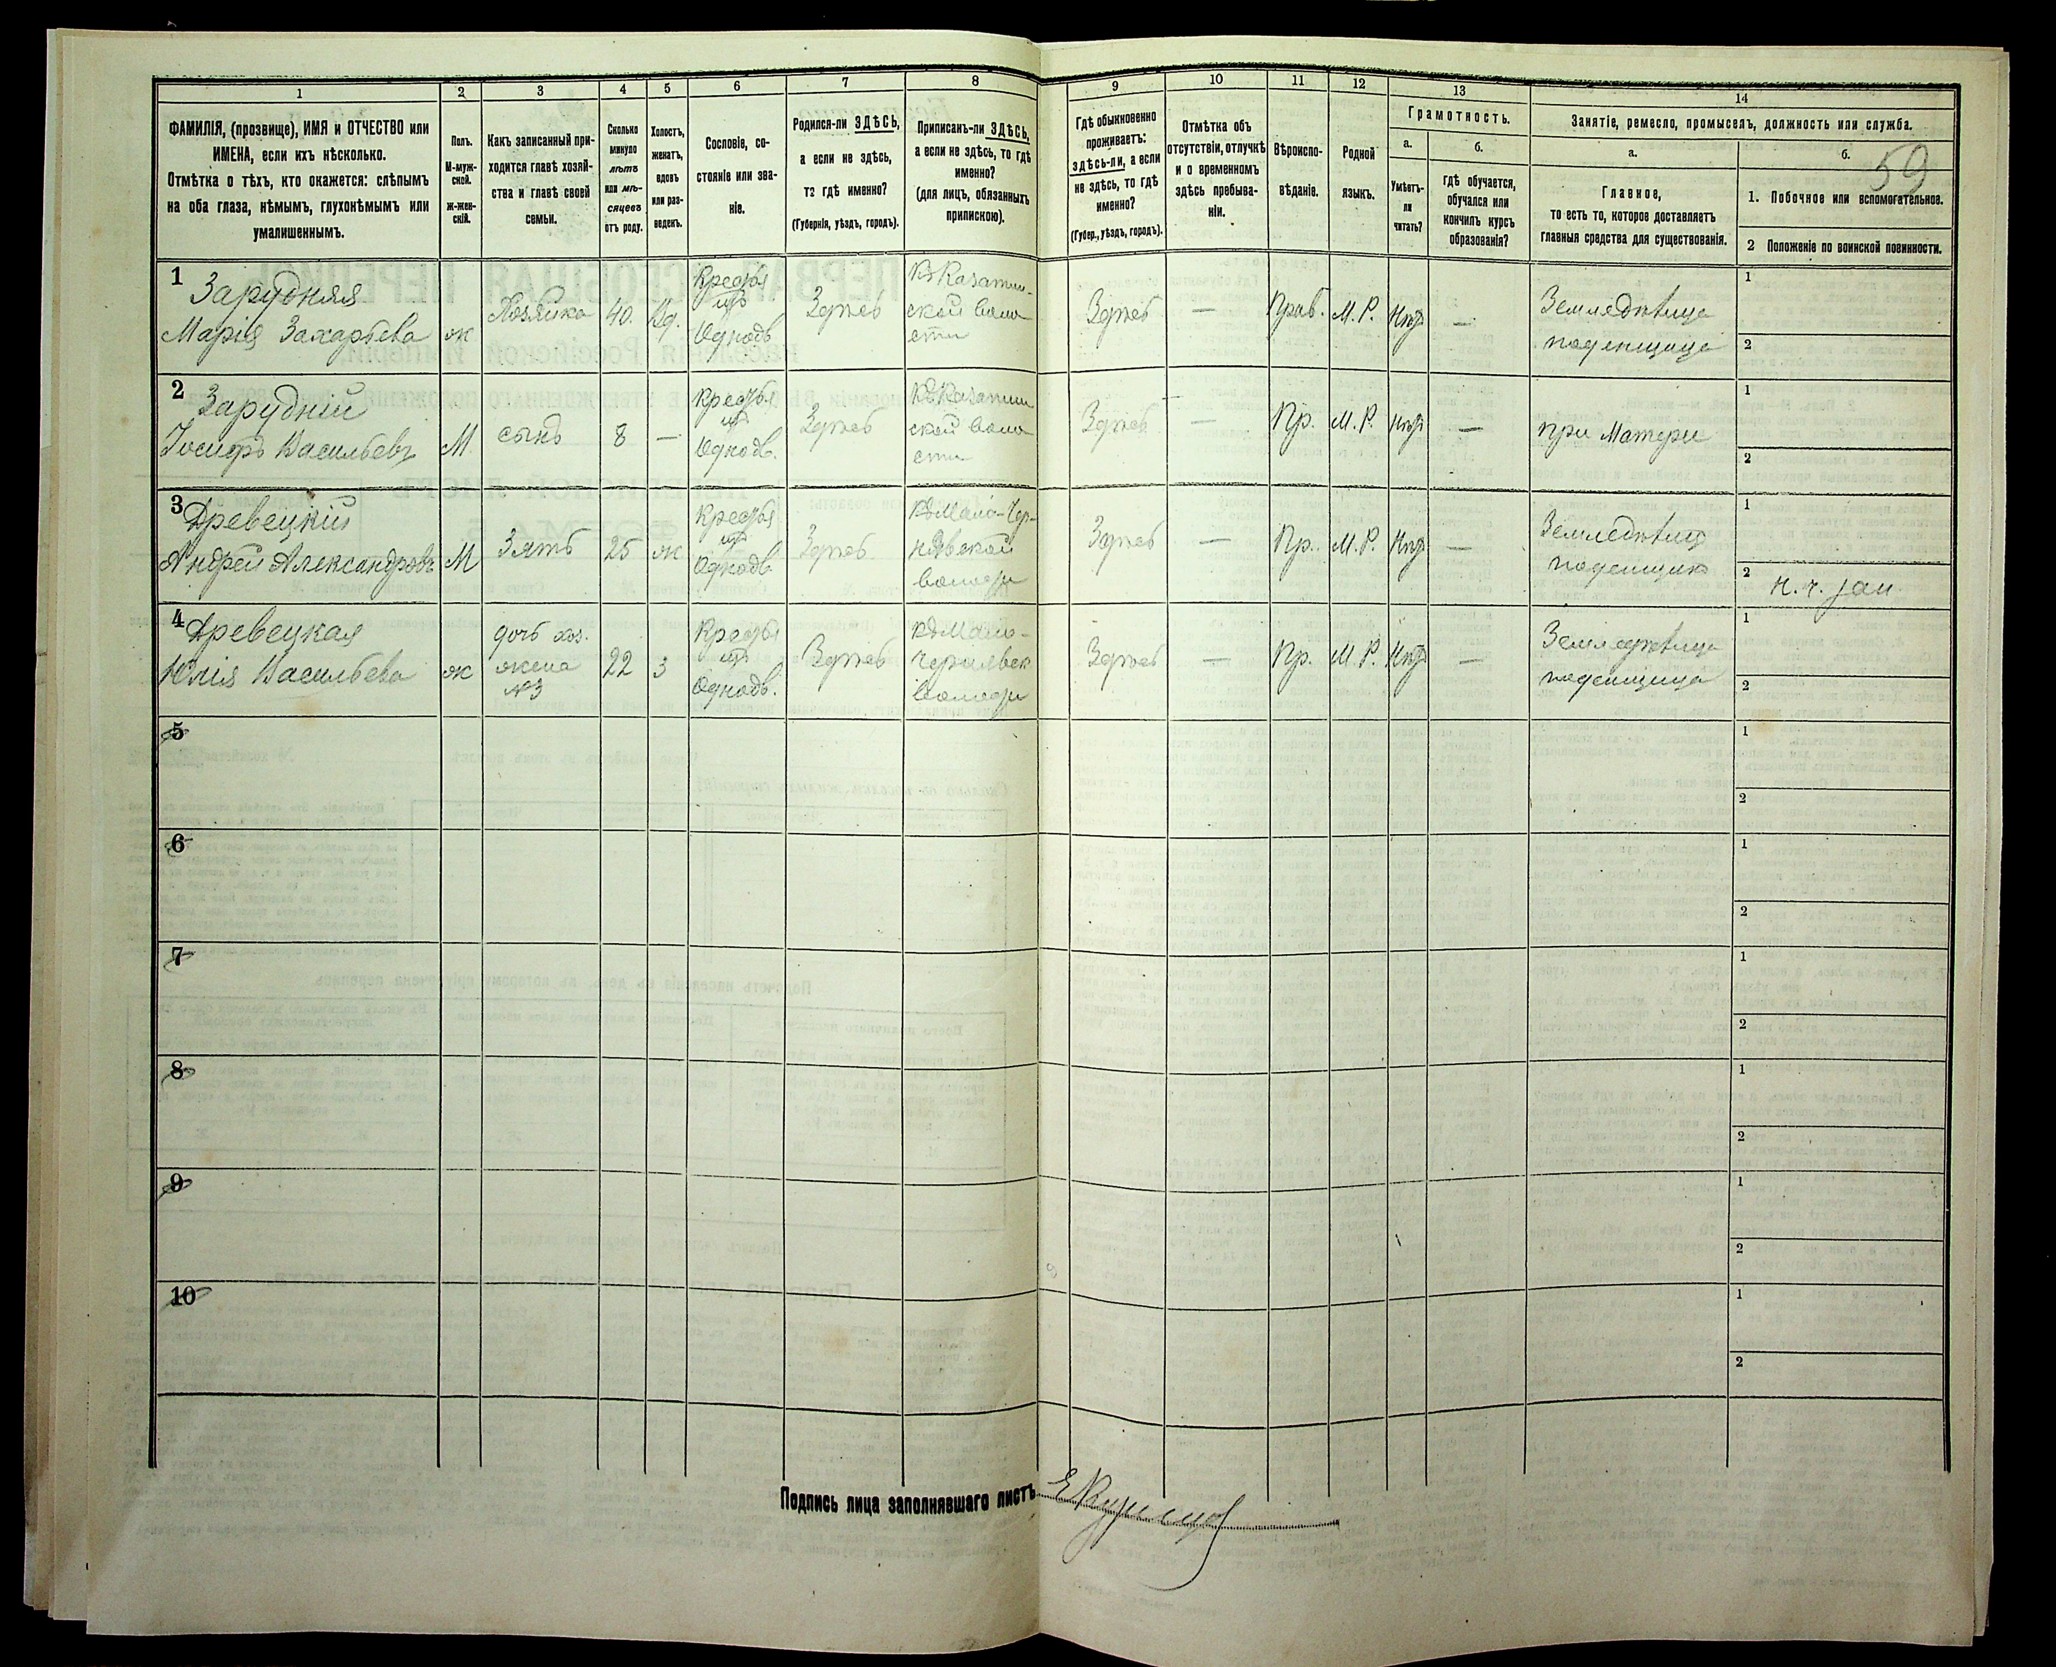 1 2 3 4 5 6 7 8 9 10 11 12 13 14
ФАМИЛІЯ, (прозвище), ИМЯ и ОТЧЕСТВО или
ИМЕНА, если ихъ нѣсколько.
Отмѣтка о тѣхъ, кто окажется: слѣпымъ
на оба глаза, нѣмымъ, глухонѣмымъ или
умалишеннымъ.
Полъ.
М-муж-
ской.
ж-жен-
скій.
Какъ записанный при-
ходится главѣ хозяй-
ства и главѣ своей
семьи.
Сколько
минуло
лѣтъ
или мѣ-
сяцевъ
отъ роду.
Холостъ,
женатъ,
вдовъ
или раз-
веденъ.
Сословіе, со-
стояніе или зва-
ніе.
Родился-ли ЗДѢСЬ,
а если не здѣсь,
то гдѣ именно?
(Губернія, уѣздъ, городъ).
Приписанъ-ли ЗДѢСЬ,
а если не здѣсь, то гдѣ
именно?
(для лицъ, обязанныхъ
припискою).
Гдѣ обыкновенно
проживаетъ:
здѣсь-ли, а если
не здѣсь, то гдѣ
именно?
(Губер., уѣздъ, городъ).
Отмѣтка объ
отсутствіи, отлучкѣ
и о временномъ
здѣсь пребыва-
ніи.
Вѣроиспо-
вѣданіе.
Родной
языкъ.
Грамотность.
а.
Умѣетъ-
ли
читать?
б.
Гдѣ обучается,
обучался или
кончилъ курсъ
образованія?
Занятіе, ремесло, промыселъ, должность или служба.
а.
Главное,
то есть то, которое доставляетъ
главныя средства для существованія.
б.
59
1. Побочное или вспомогательное.
2 Положеніе по воинской повинности.
1
Зарудняя
Марія Захарьева
ж
Хозяйка
40.
Вд.
Однодв.
Здѣсь
ской воло
сти
Здѣсь
—
Прав.
М. Р.
—
Земледѣлица
поденщица
1
2
2
Зарудній
Іосифъ Васильевъ
М
сынъ
8
—
Однодв.
Здѣсь
ской воло
сти
Здѣсь
—
Пр.
М. Р.
—
при Матери
1
2
3
Древецкій
Андрей Александровъ
М
Зять
25
ж
Однодв.
Здѣсь
Здѣсь
—
Пр.
М. Р.
—
Земледѣлец
поденщик
1
2
4
Древецкая
Юлія Васильева
ж
дочь хоз.
жена
№3
22
З
Однодв.
Здѣсь
Здѣсь
—
Пр.
М. Р.
—
Земледѣлица
поденщица
1
2
5
1
2
6
1
2
7
1
2
8
1
2
9
1
2
10
1
2
Подпись лица заполнявшаго листъ